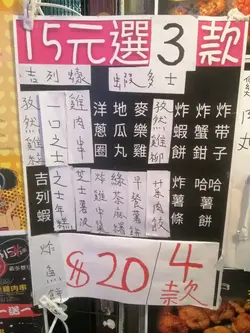 15元選3款
吉列蠔
蝦多士
孜然雞翼
一口之士
雞肉串
洋蔥圈
地瓜丸
麥樂雞
孜然雞柳
炸蝦餅
炸蟹鉗
炸帶子
吉列蝦
之士年糕
芝士薯波
炸雞中翼
綠茶麻糬
早餐薯餅
菜肉餃
炸薯條
哈哈餅
炸魚餅
$20/4款